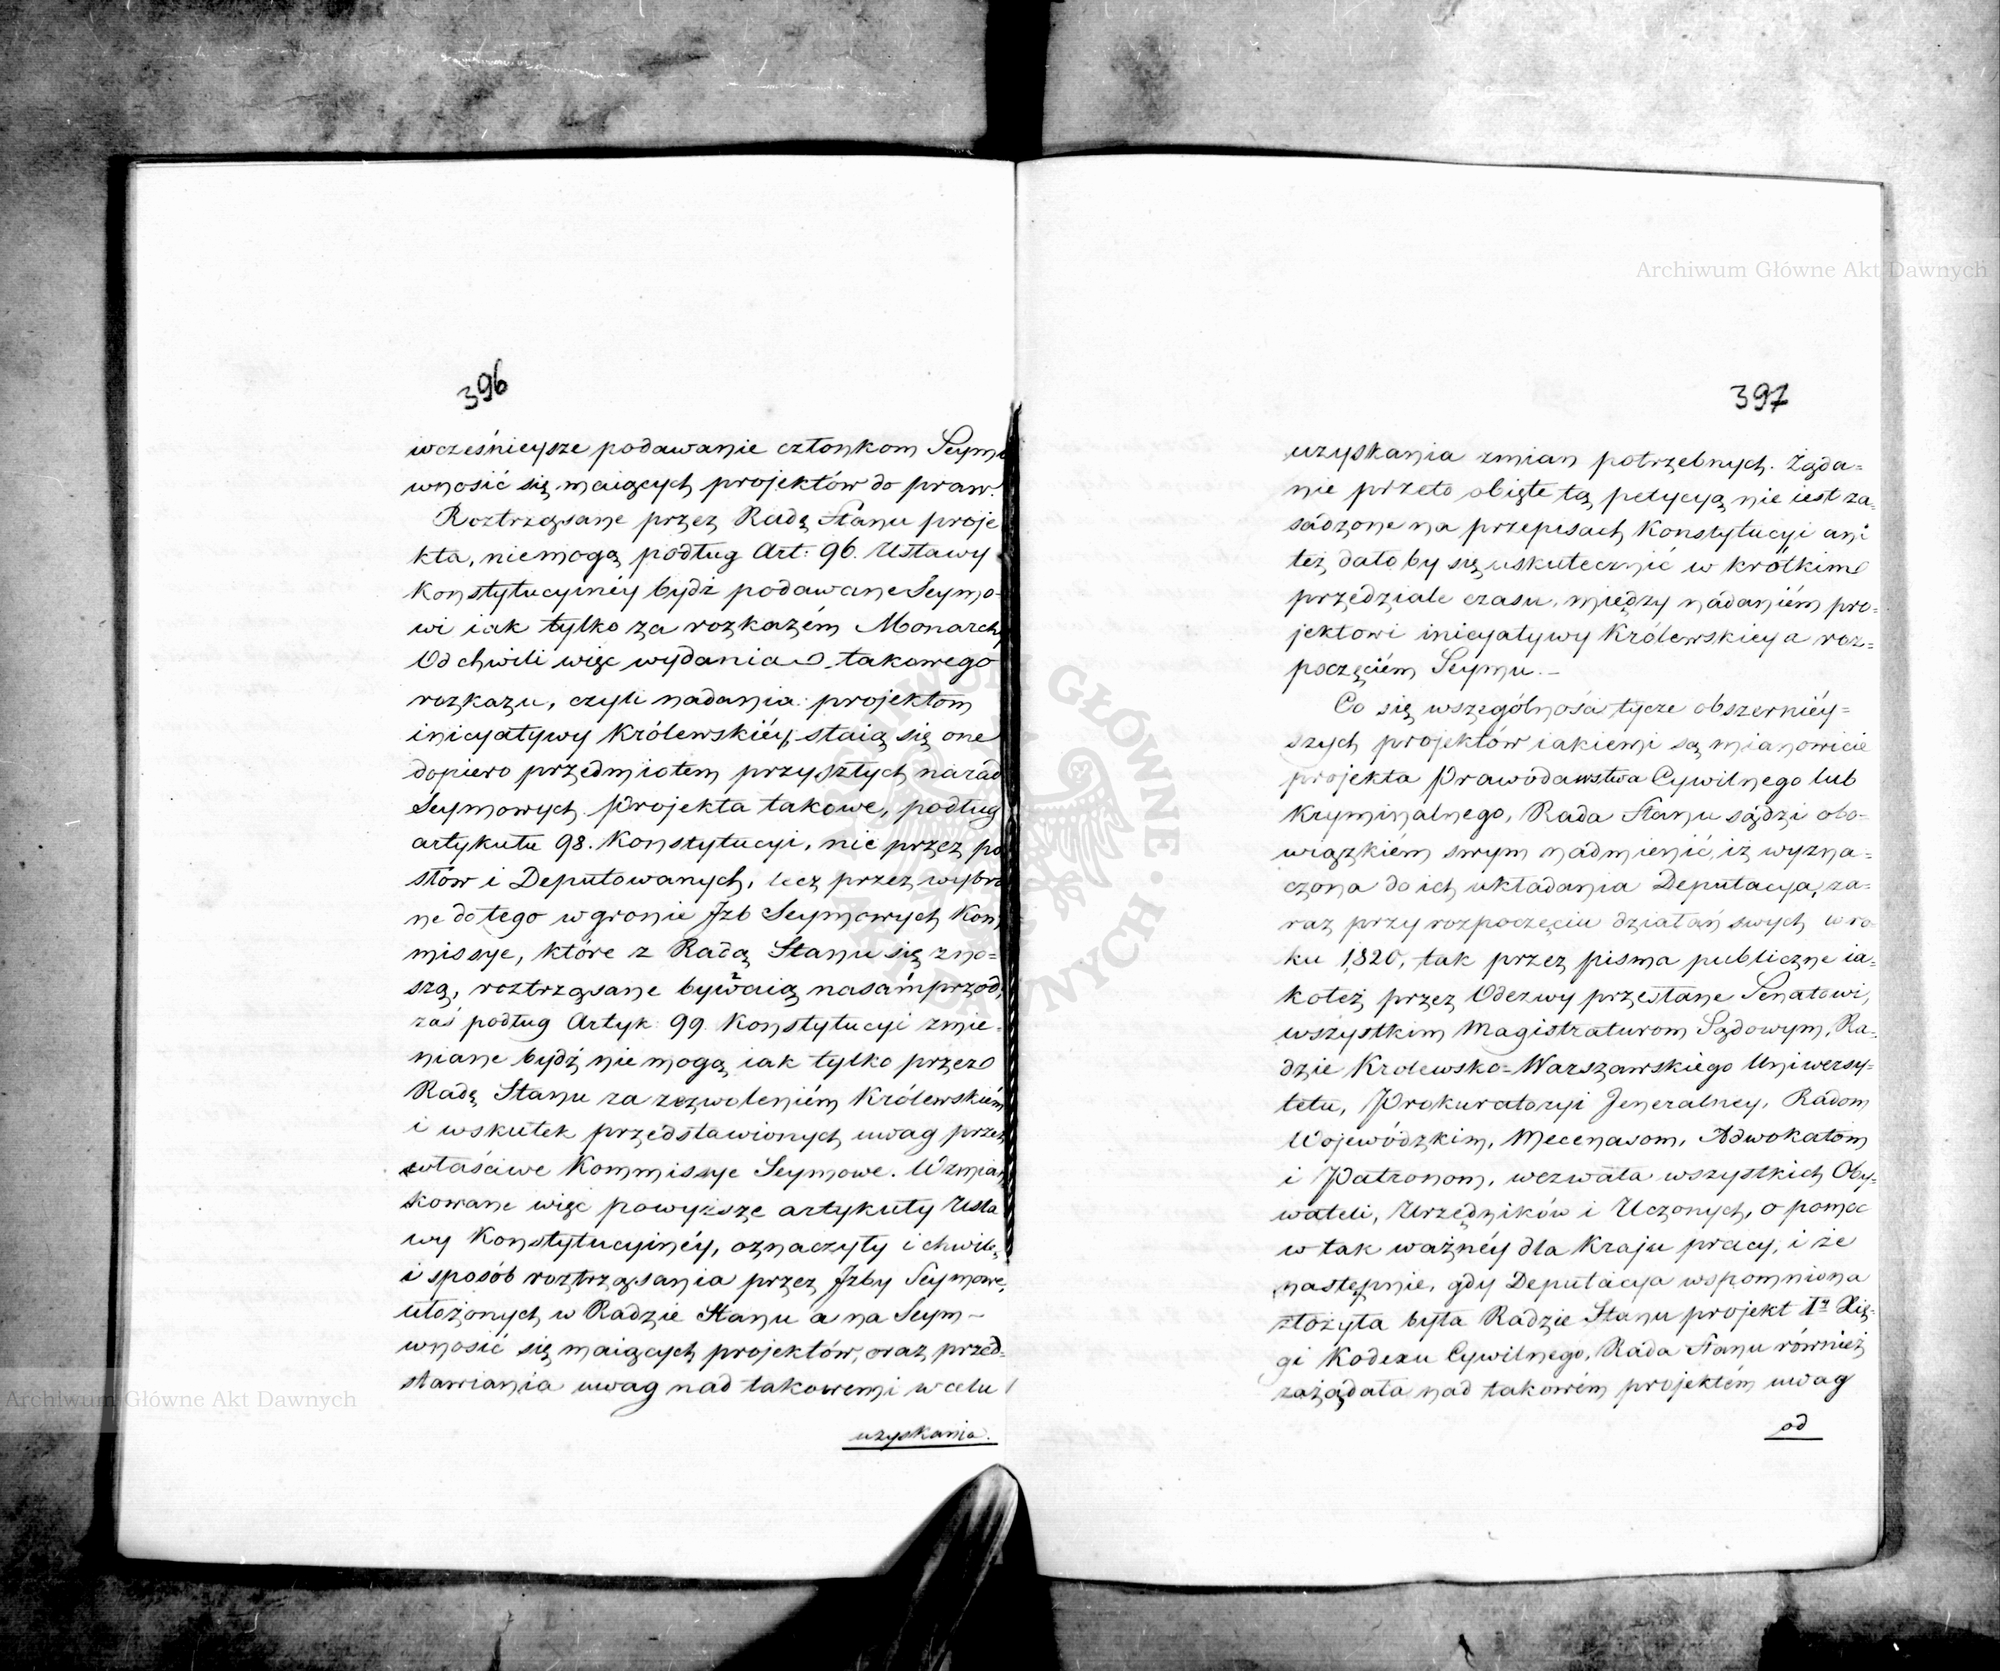 396
wcześnieysze podawanie członkom Seymu
wnosić się maiących projektów do praw.
Roztrząsane przez Radę Stanu proje
kta, niemogą podług Art: 96. Ustawy
Konstytucyinéy bydź podawane Seymo-
wi iak tylko za rozkazém Monarchy
Od chwili więc wydania takowego
rozkazu, czyli nadania projektom
inicyatywy Królewskiéy, staią się one
dopiero przedmiotem przyszłych narad
Seymowych. Projekta takowe, podług
artykułu 98. Konstytucyi, nie przez po
słów i Deputowanych, lecz przez wybra
ne do tego w gronie Izb Seymowych Kom
missye, które z Radą Stanu się zno-
szą, roztrząsane bywaią nasámprzód,
zaś podług Artyk: 99. Konstytucyi zmie-
niane bydź nie mogą iak tylko przez
Radę Stanu za zezwoleniém Królewskiém
i wskutek przedstawionych uwag przez
właściwe Kommissye Seymowe. Wzmian
kowane więc powyższe artykuły Usta
wy Konstytucyinéy, oznaczyły i chwilę
i sposób roztrząsania przez Izby Seymowe,
ułożonych w Radzie Stanu a na Seym-
wnosić się maiących projektów, oraz przed-
stawiania uwag nad takowemi w celu
uzyskania.
397
uzyskania zmian potrzebnych. Żąda-
nie przeto obięte tą petycyą nie iest za-
sádzone na przepisach Konstytucyi ani
też dało by się uskutecznić w krótkim
przedziale czasu, między nádaniém pro-
jektowi inicyatywy Królewskiey a roz-
poczęciém Seymu.-
Co się wszególności tycze obszerniéy-
szych projektów iakiemi są mianowicie
projekta Prawodawstwa Cywilnego lub
Kryminalnego, Rada Stanu sądzi obo-
wiązkiém swym nadmienić, iż wyzna-
czona do ich układania Deputacya, za-
raz przy rozpoczęciu działań swych w ro-
ku 1820, tak przez pisma publiczne ia-
koteż przez Odezwy przesłane Senatowi,
wszystkim Magistraturom Sądowym, Ra-
dzie Krolewsko-Warszawskiego Uniwersy-
tetu, Prokuratoryi Jeneralney, Radom
Wojewódzkim, Mecenasom, Adwokatom
i Patronom, wezwała wszystkich Oby-
wateli, Urzędników i Uczonych, o pomoc
w tak ważnéy dla Kraju pracy, i że
następnie, gdy Deputacya wspomniona
złożyła była Radzie Stanu projekt Iéy Xię-
gi Kodexu Cywilnego, Rada Stanu również
zażądała nad takowém projektém uwag
od
Archiwum Główne Akt Dawnych
Archiwum Główne Akt Dawnych